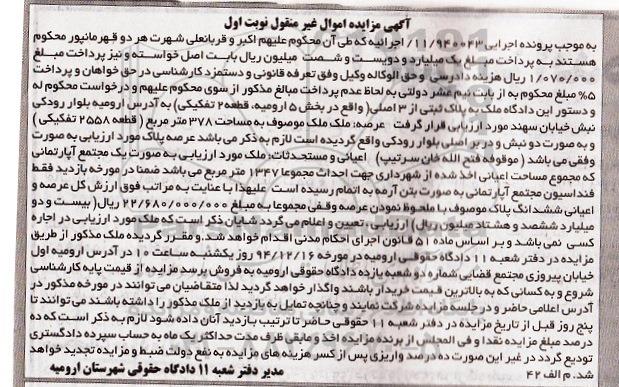 آگهی مزایده اموال غیر منقول نوبت اول
به موجب پرونده اجرایی ۱۱/۹۴۰۰۴۳/ اجرائیه که طی آن محکوم علیهم اکبر و قربانعلی شهرت هر دو قهرمانپور محکوم
هستند به پرداخت مبلغ یک میلیارد و دویست و شصت میلیون ریال بابت اصل خواسته و نیز پرداخت مبلغ
۱/۰۷۰/۰۰۰ ریال هزینه دادرسی و حق الوکاله وکیل وفق تعرفه قانونی و دستمزد کارشناسی در حق خواهان و پرداخت
۵% مبلغ محکوم به از بابت نیم عشر دولتی به لحاظ عدم پرداخت مبالغ مذکور از سوی محکوم علیهم و درخواست محکوم له
و دستور این دادگاه ملک به پلاک ثبتی از ۳ اصلی( واقع در بخش ۵ ارومیه. قطعه۲ تفکیکی) به آدرس ارومیه بلوار رودکی
نبش خیابان سهند مورد ارزیابی قرار گرفت عرصه: ملک ملک موصوف به مساحت ۳۷۸ متر مربع ( قطعه ۲۵۵۸ تفکیکی )
و به صورت دو نبش و در بر اصلی بلوار رودکی واقع گردیده است لازم به ذکر می باشد عرصه پلاک مورد ارزیابی به صورت
وقفی می باشد ( موقوفه فتح الله خان سرتیپ) اعیانی و مستحدثات: ملک مورد ارزیابی به صورت یک مجتمع آپارتمانی
که مجموع مساحت اعیانی اخذ شده از شهرداری جهت احداث مجموعا ۱۳۴۷ متر مربع می باشد ضمنا در مورخه بازدید فقط
فنداسیون مجتمع آپارتمانی به صورت بتن آرمه به اتمام رسیده است علیهذا با عنایت به مراتب فوق ارزش کل عرصه و
اعیانی ششدانگ پلاک موصوف با ملحوظ نمودن عرصه وقفی مجموعا به مبلغ ۲۲/۶۸۰/۰۰۰/۰۰۰ ریال( بیست و دو
میلیارد ششصد و هشتاد میلیون ریال) ارزیابی، تعیین و اعلام می گردد شایان ذکر است که ملک مورد ارزیابی در اجاره
کسی نمی باشد و بر اساس ماده ۵۱ قانون اجرای احکام مدنی اقدام خواهد شد. و مقرر گردیده ملک مذکور از طریق
مزایده در دفتر شعبه ۱۱ دادگاه حقوقی ارومیه در مورخه ۹۴/۱۲/۱۶ روز یکشنبه ساعت ۱۰ در آدرس ارومیه اول
خیابان پیروزی مجتمع قضایی شماره دو شعبه یازده دادگاه حقوقی ارومیه به فروش برسد مزایده از قیمت پایه کارشناسی
شروع و به کسانی که به بالاترین قیمت خریدار باشند واگذار خواهد گردید لذا متقاضیان می توانند در مورخه مذکور در
آدرس اعلامی حاضر و در جلسه مزایده شرکت نمایند و چنانچه تمایل به بازدید از ملک مذکور را داشته باشند می توانند تا
پنج روز قبل از تاریخ مزایده در دفتر شعبه ۱۱ حقوقی حاضر تا ترتیب بازدید آنان داده شود لازم به ذکر است که ده
درصد مبلغ مزایده نقدا و فی المجلس از برنده مزایده اخذ و مابقی ظرف مدت حداکثر یک ماه به حساب سپرده دادگستری
تودیع گردد در غیر این صورت ده درصد واریزی پس از کسر هزینه های مزایده به نفع دولت ضبط و مزایده تجدید خواهد
شد. م الف ۴۲ مدیر دفتر شعبه ۱۱ دادگاه حقوقی شهرستان ارومیه